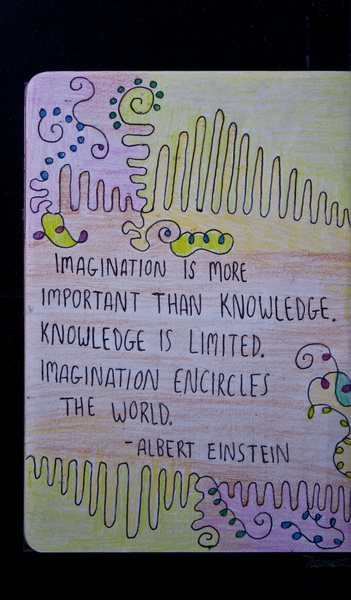 IMAGINATION IS MORE
IMPORTANT THAN KNOWLEDGE.
KNOWLEDGE IS LIMITED.
IMAGINATION ENCIRCLES
THE WORLD.
-ALBERT EINSTEIN